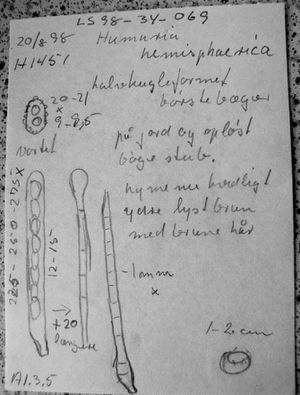 LS 98-34-069
20/8-98
H1451
Humaria
hemisphaerica
halvkugleformet
børstebæger
20-21
x
9-9,5
vortet
på jord og opløst
bøge stub.
hymenie hvidligt
ydre lyst brun
med brune hår
225-250-275 x
12-15
+20
længere
-1 mm
x
1-2 cm
A1.3,5